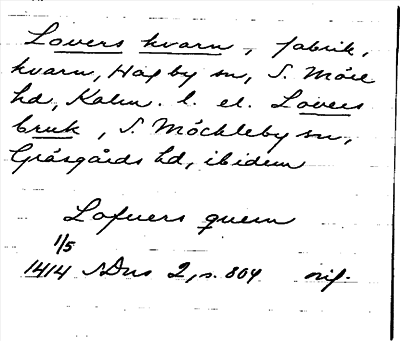 Lovers kvarn, fabrik,
kvarn, Hagby sn, S. Möre
hd, Kalm. l. el. Lovers
bruk, S. Möckleby sn,
Gräsgårds hd, ibidem
Lofuers quern
1/5
1414 SDns 2, s. 804 orig.